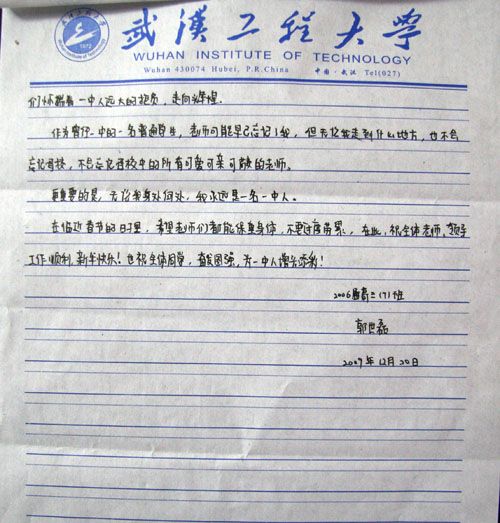 武汉工程大学
1972
WUHAN INSTITUTE OF TECHNOLOGY
Wuhan 430074 Hubei, P.R.China 中国·武汉 Tel(027)
们怀揣着一中人远大的抱负,走向辉煌.
作为曾经一中的一名普通学生,老师可能早已忘记了我,但无论我走到什么地方,也不会
忘记母校,不会忘记母校中的所有可爱可亲可敬的老师。
更重要的是,无论我身处何处,我永远是一名一中人。
在临近春节的日子里,希望老师们都能保重身体,不要过度劳累。在此,祝全体老师、领导
工作顺利,新年快乐!也祝全体同学,奋发图强,为一中人增光添彩!
2006届高三(7)班
郭世磊
2009年12月20日